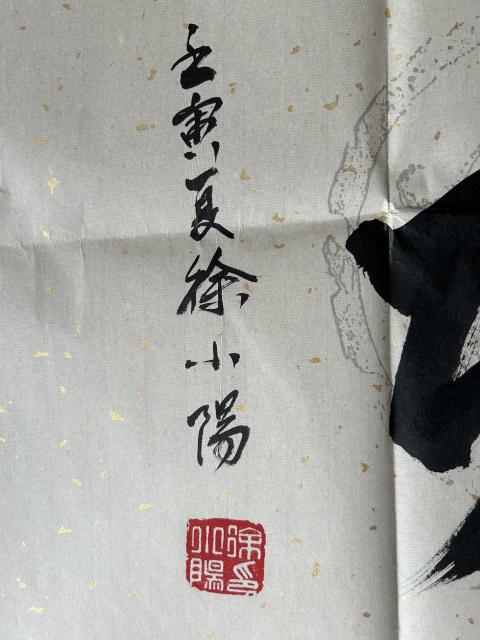 壬寅夏徐小陽
徐小陽印